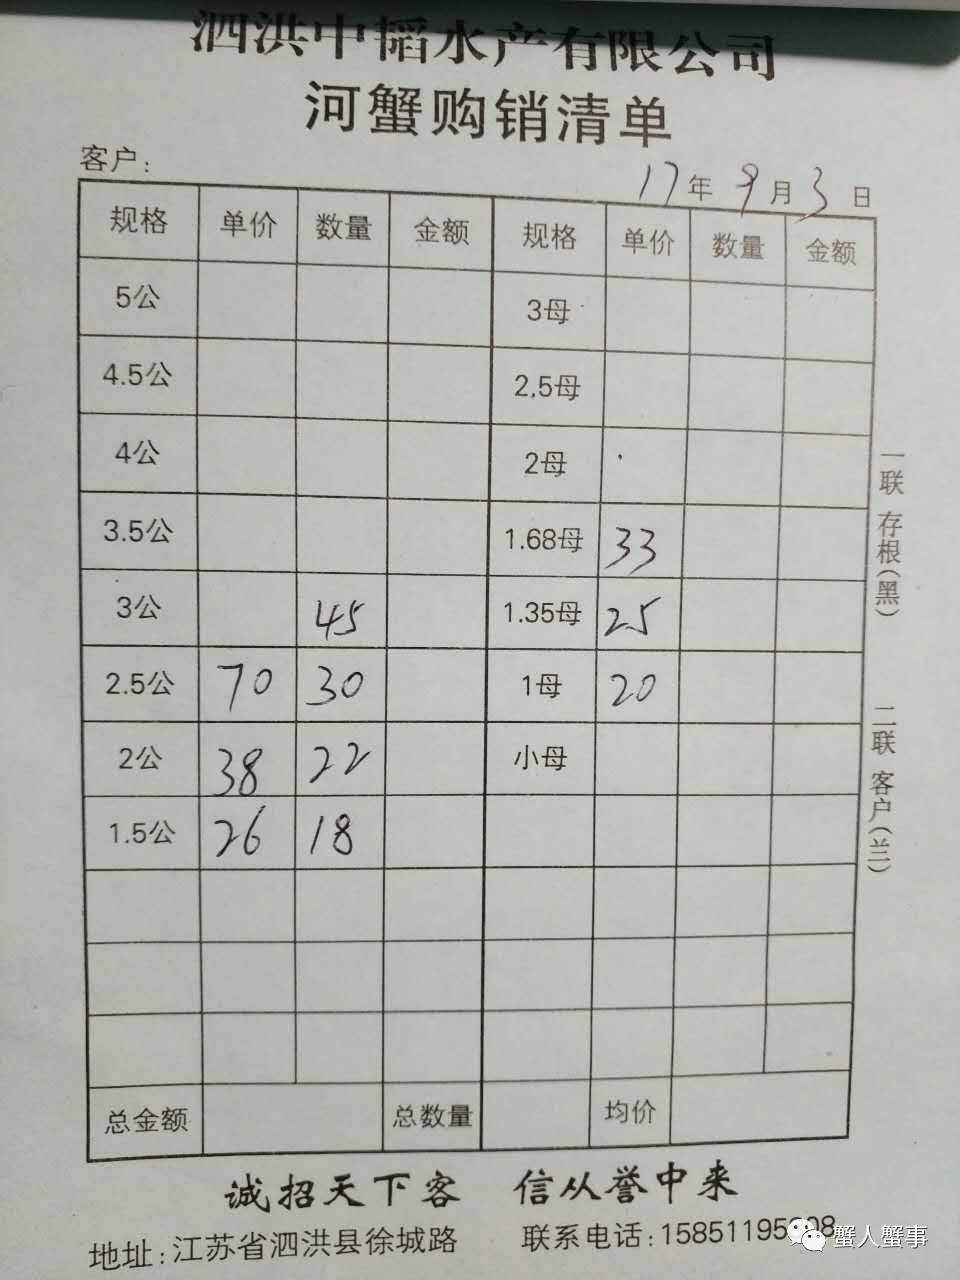 泗洪中韬水产有限公司
河蟹购销清单
客户: 17年9月3日
规格 单价 数量 金额 规格 单价 数量 金额
5公 3母
4.5公 2,5母
4公 2母
3.5公 1.68母 33
3公 45 1.35母 25
2.5公 70 30 1母 20
2公 38 22 小母
1.5公 26 18
总金额 总数量 均价
一联 存根(黑) 二联 客户(兰)
诚招天下客 信从誉中来
地址:江苏省泗洪县徐城路 联系电话:
蟹人蟹事